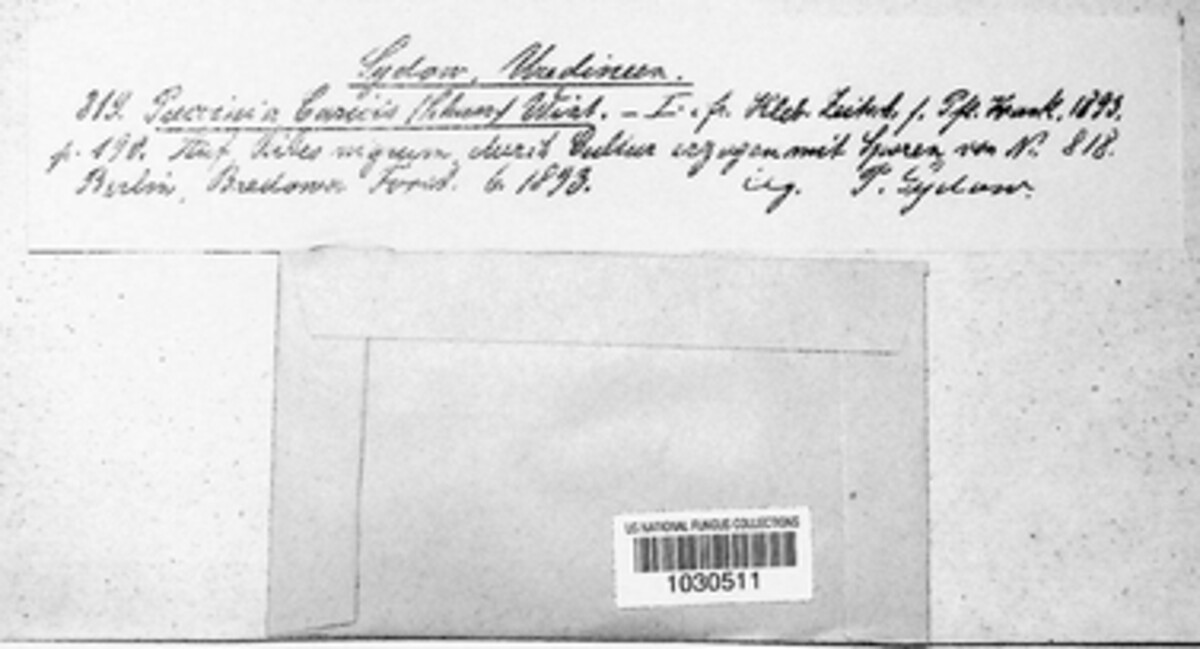 Sydow, Uredineen.
819. Puccinia Caricis (Schum) Wint. – I. fr. Kleb. Zeitsch. f. Pfl. Krank. 1893.
p. 190. Auf Ribes nigrum, durch Cultur erzogen mit Sporen von N. 818.
Berlin, Bredower Forst. 6. 1893. leg. P. Sydow.
US NATIONAL FUNGUS COLLECTIONS
1030511